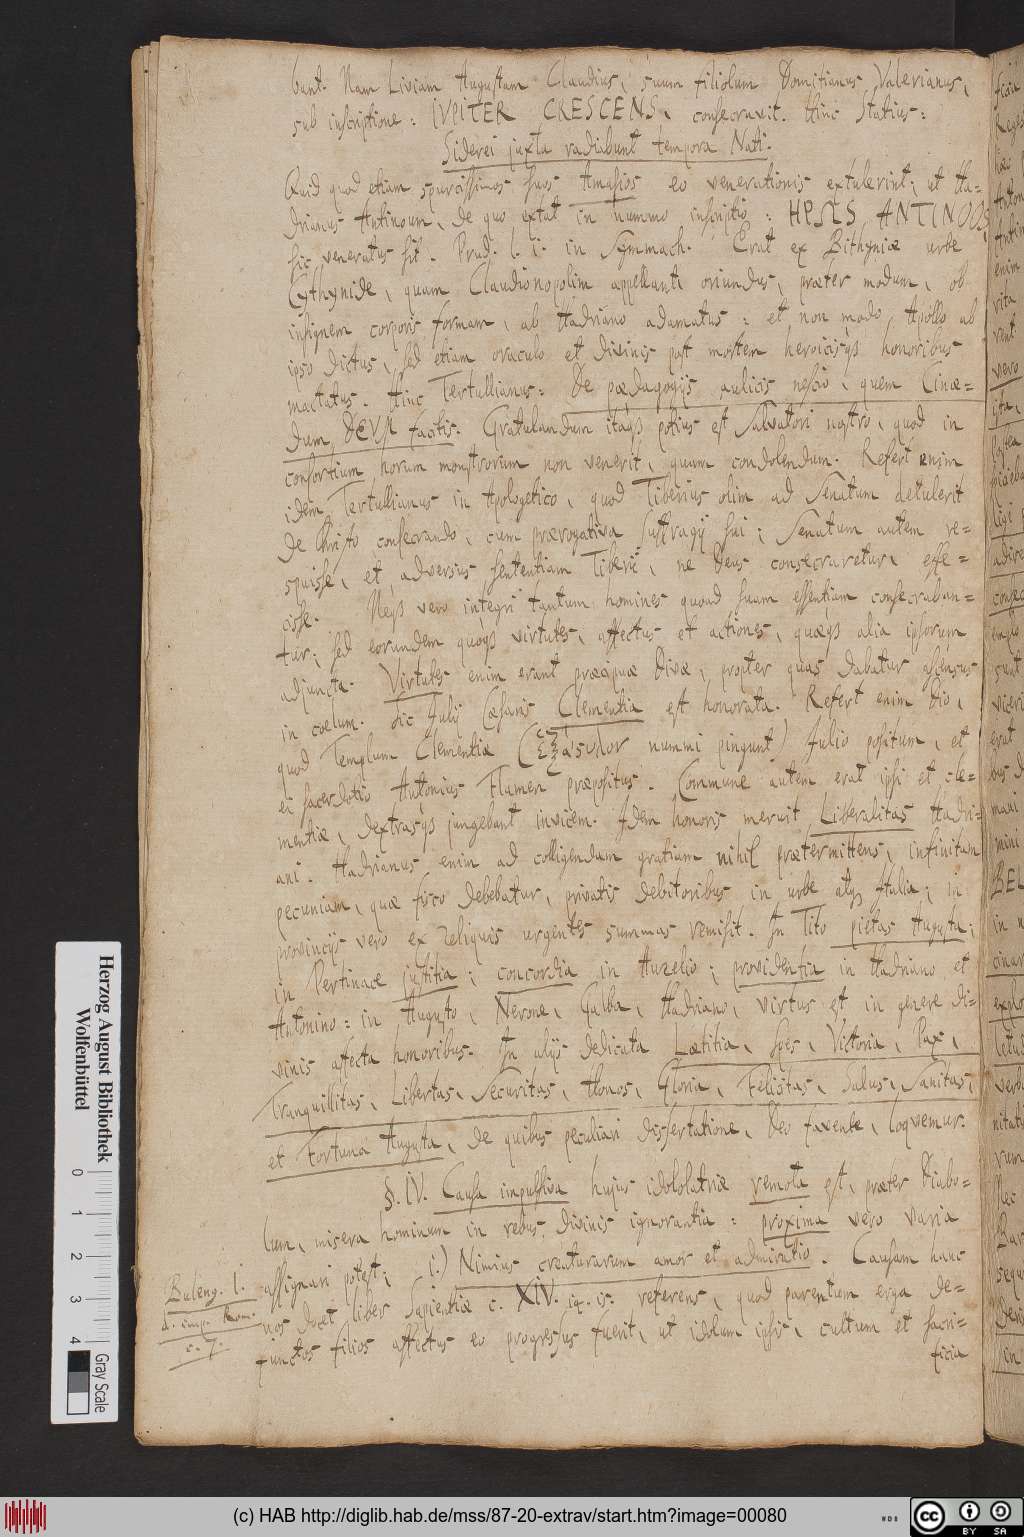 bunt. Nam Liviam Augustam Claudius, suum filiolum Domitianus Valerianus,
sub inscriptione: IVPITER CRESCENS, consecravit. Hinc Statius:
Siderei juxta radiabunt tempora Nati.
Quid quod etiam spurcissimos suos Amasios eo venerationis extulerint; ut Ha=
drianus Antinoum, de quo extat in nummo inscriptio: ANTINOOS,
sic veneratus sit. Prud. l. i. in Symmach. Erat ex Bithyniæ urbe
Cythynide, quam Claudionopolim appellant, oriundus, præter modum, ob
insignem corporis formam, ab Hadriano adamatus: et non modo Apollo ab
ipso dictus, sed etiam oraculo et divinis post mortem heroicisqs honoribus
mactatus. Hinc Tertullianus: De pædagogijs aulicis nescio, quem Cinæ=
dum, DEVM facitis. Gratulandum itaqs potius est Salvatori nostro, quod in
consortium horum monstrorum non venerit, quam condolendum. Refert enim
idem Tertullianus in Apologetico, quod Tiberius olim ad Senatum detulerit
de Christo consecrando, cum prærogativa suffragij sui; Senatum autem re=
spuisse, et adversus sententiam Tiberii, ne Deus consecraretur, effe=
cisse. Neqs vero integri tantum homines quoad suam essentiam consecraban=
tur; sed eorundem quoqs virtutes, affectus et actiones, quæqs alia ipsorum
adjuncta. Virtutes enim erant præcipuæ Divæ, propter quas dabatur ascensus
in coelum. Sic Julij Cæsaris Clementia est honorata. Refert enim Dio,
quod Templum Clementiæ ( nummi pingunt) Julio positum, et
ei sacerdotio Antonius Flamen præpositus. Commune autem erat ipsi et cle=
mentiæ, dextrasqs jungebant invicem. Idem honoris meruit Liberalitas Hadri=
ani. Hadrianus enim ad colligendam gratiam nihil prætermittens, infinitam
pecuniam, quæ fisco debebatur, privatis debitoribus in urbe atq Italia; in
provincijs vero ex reliquis urgentes summas remisit. In Tito pietas Augusta;
in Pertinace justitia; concordia in Aurelio; providentia in Hadriano et
Antonino: in Augusto, Nerone, Galba, Hadriano, virtus et in genere di=
vinis affecta honoribus. In alijs dedicata Lætitia, spes, Victoria, Pax,
Tranquillitas, Libertas, Securitas, Honos, Gloria, Felicitas, Salus, Sanitas,
et Fortuna Augusta, de quibus peculiari dissertatione, Deo favente, loqvemur.
§. IV. Causa impulsiva hujus idololatriæ remota est, præter Diabo=
lum, misera hominum in rebus divinis ignorantia: proxima vero varia
assignari potest; i.) Nimius creaturarum amor et admiratio. Causam hanc
nos docet liber Sapientiæ c. XIV. is. referens, quod parentum erga de=
functos filios affectus eo progressus fuerit, ut idolum ipsis, cultum et sacri=
ficia
Buleng. l.
d. imp. Rom.
c. 7.
Herzog August Bibliothek
Wolfenbüttel
0 1 2 3 4 Gray Scale
(c) HAB http://diglib.hab.de/mss/87-20-extrav/start.htm?image=00080
WDB
cc BY SA